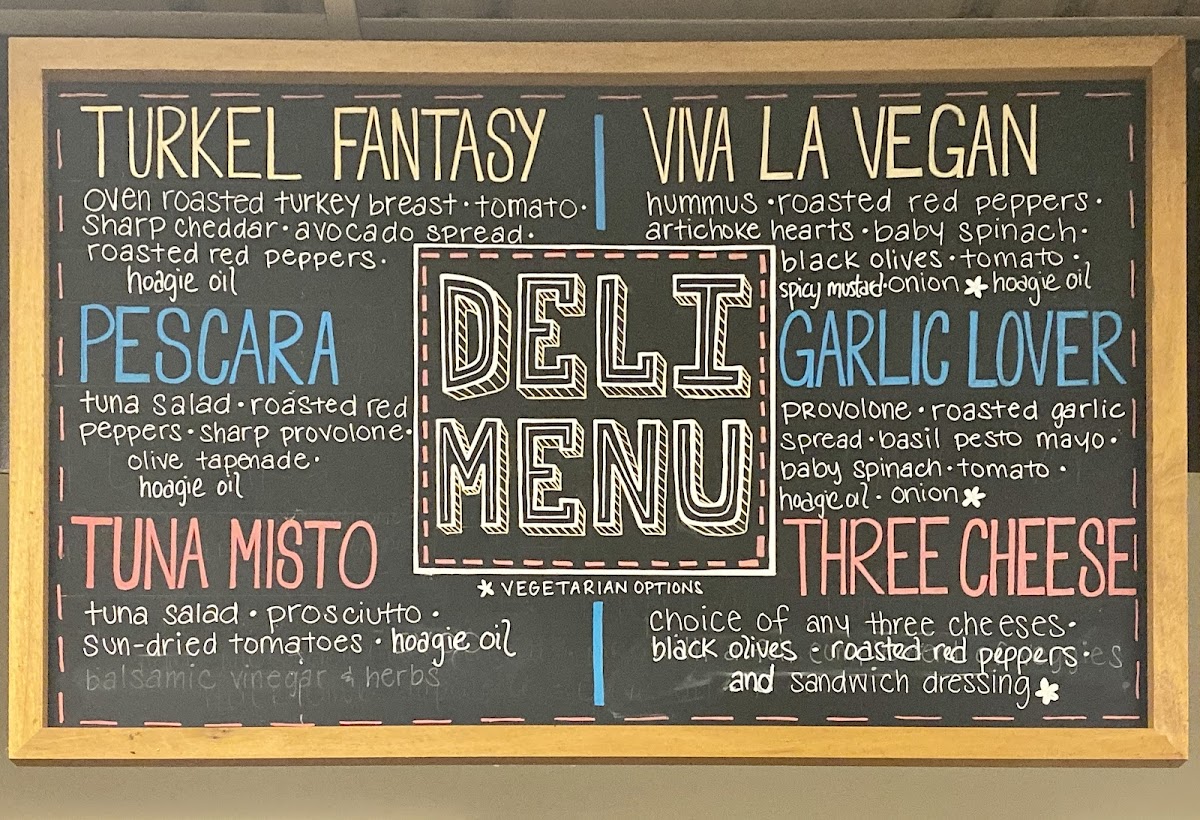 TURKEL FANTASY
oven roasted turkey breast • tomato •
sharp cheddar • avocado spread •
roasted red peppers •
hoagie oil
PESCARA
tuna salad • roasted red
peppers • sharp provolone •
olive tapenade •
hoagie oil
TUNA MISTO
tuna salad • prosciutto •
sun-dried tomatoes • hoagie oil
balsamic vinegar & herbs
DELI
MENU
* VEGETARIAN OPTIONS
VIVA LA VEGAN
hummus • roasted red peppers •
artichoke hearts • baby spinach •
black olives • tomato •
spicy mustard • onion * hoagie oil
GARLIC LOVER
provolone • roasted garlic
spread • basil pesto mayo •
baby spinach • tomato •
hoagie oil • onion *
THREE CHEESE
choice of any three cheeses •
black olives • roasted red peppers •
and sandwich dressing *